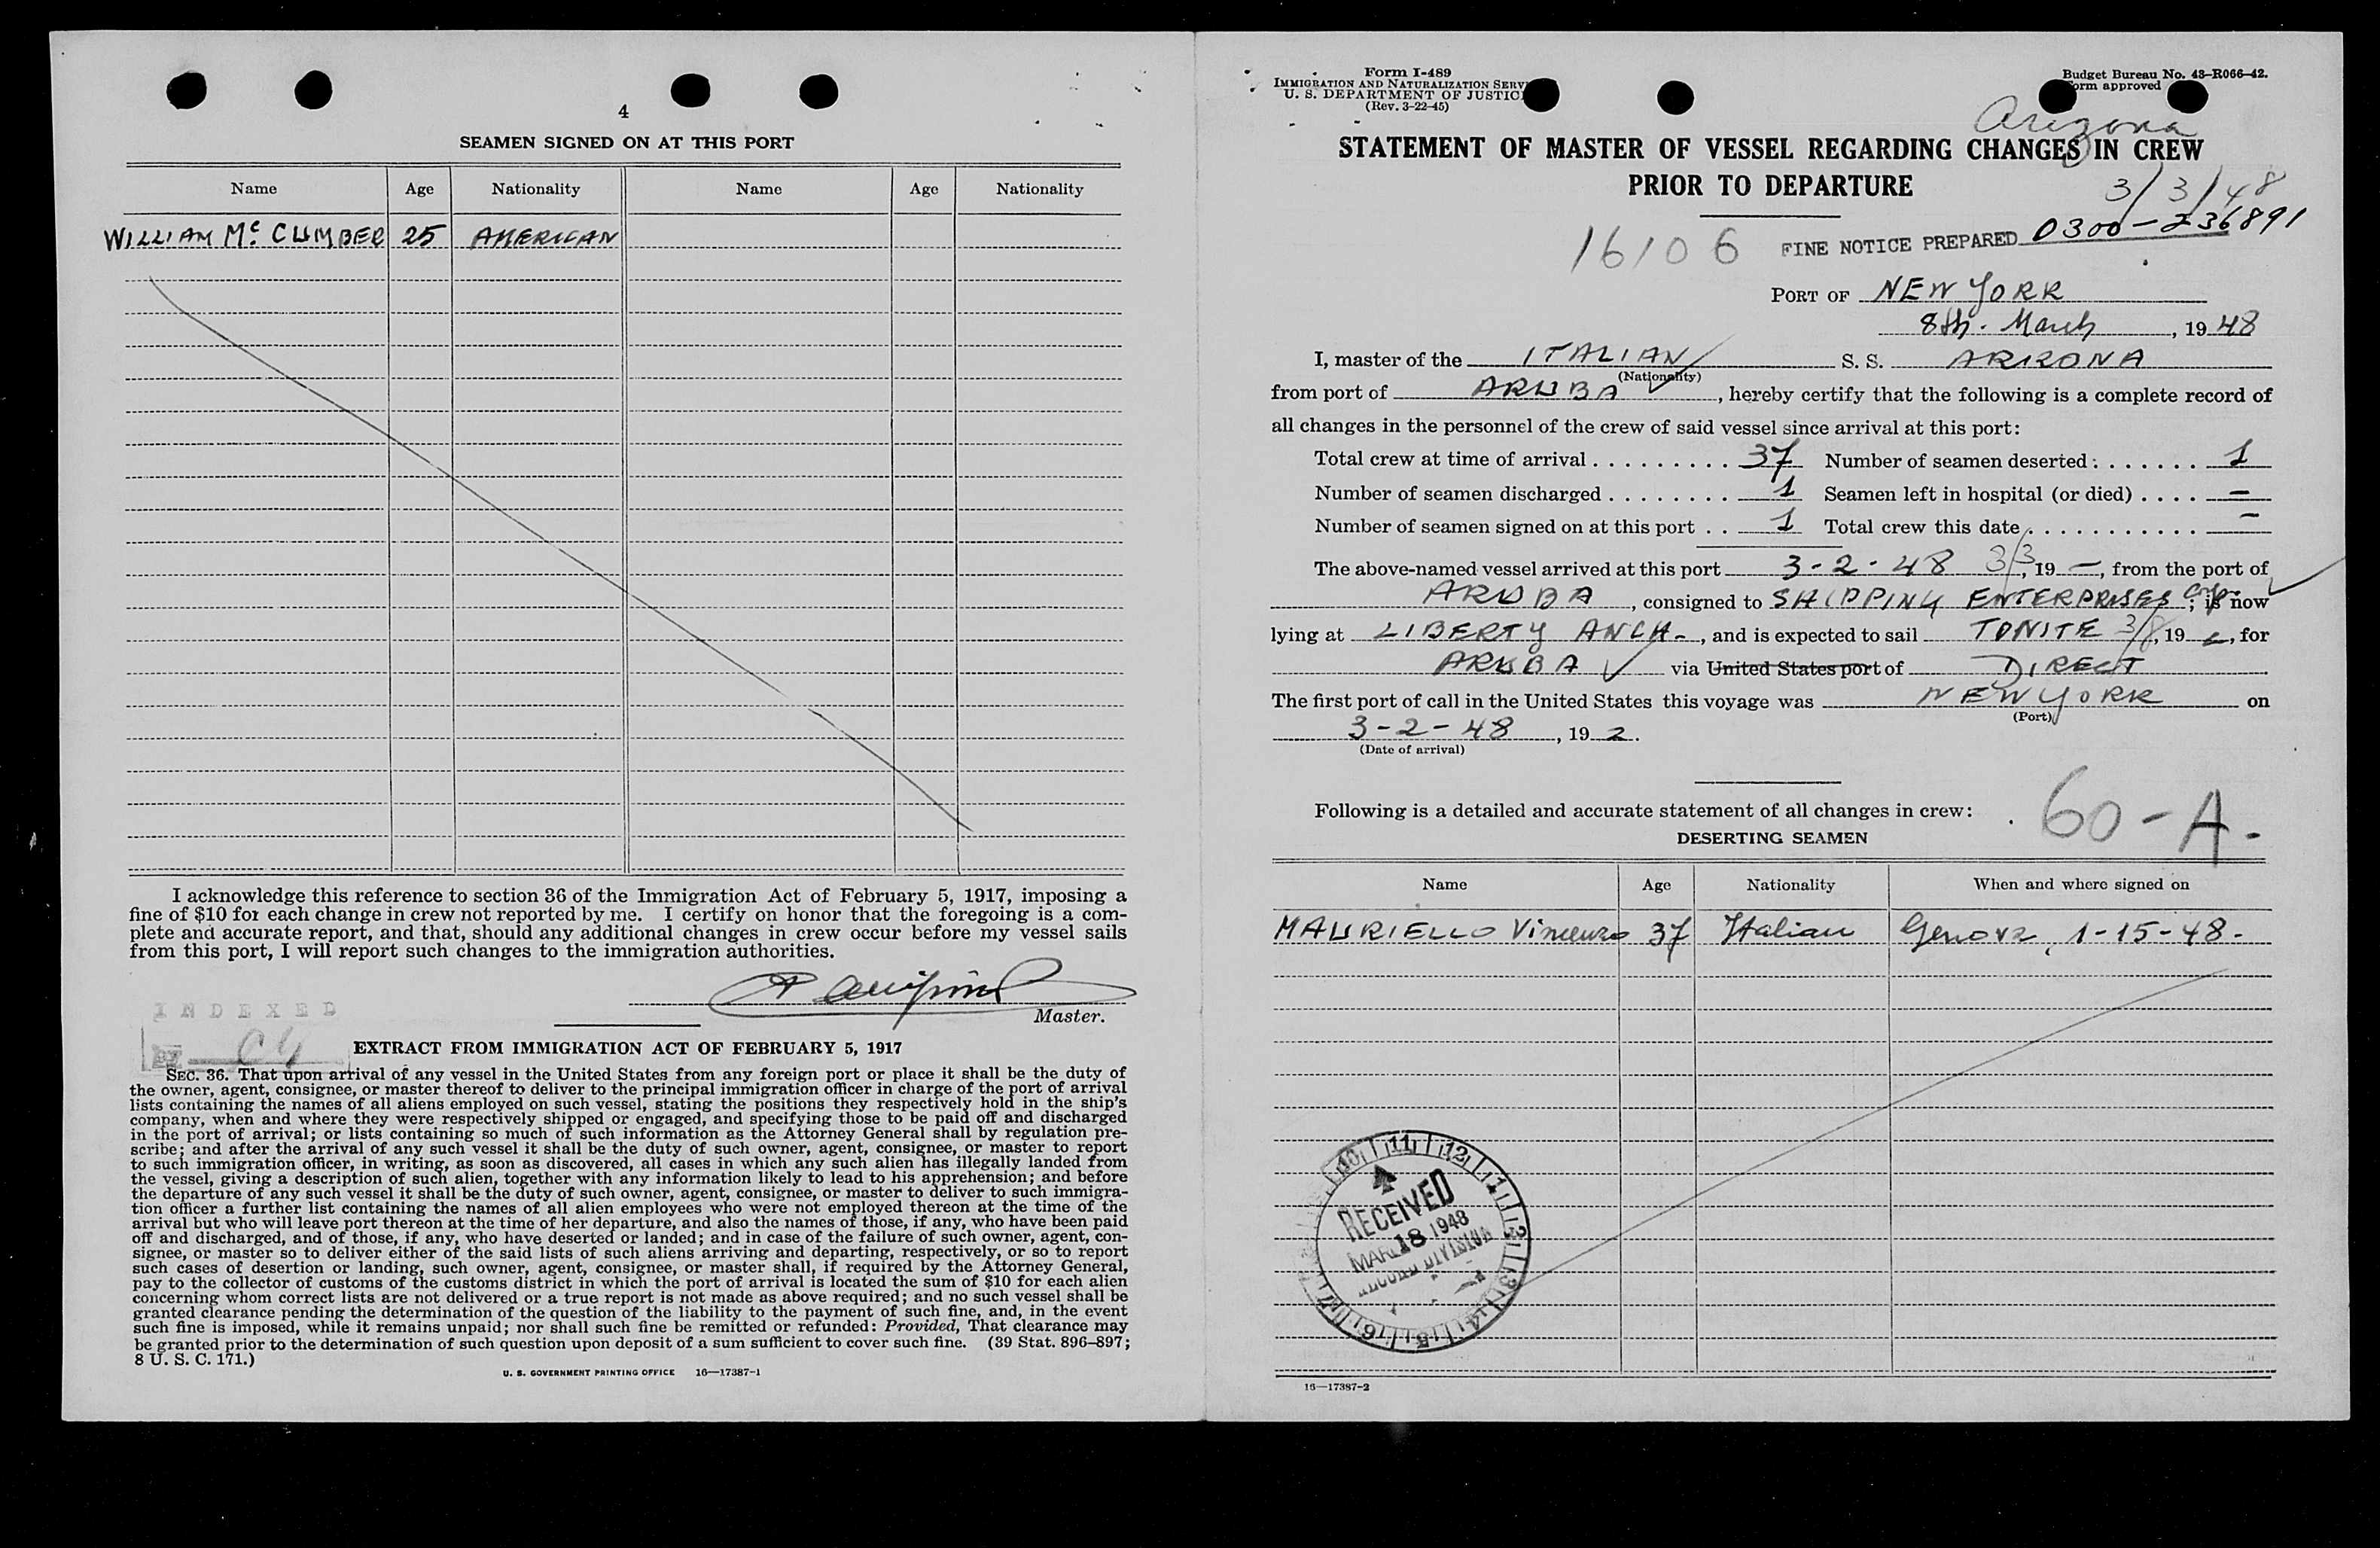 4
SEAMEN SIGNED ON AT THIS PORT
Name Age Nationality Name Age Nationality
WILLIAM Mc CUMBER 25 AMERICAN
I acknowledge this reference to section 36 of the Immigration Act of February 5, 1917, imposing a
fine of $10 for each change in crew not reported by me. I certify on honor that the foregoing is a com-
plete and accurate report, and that, should any additional changes in crew occur before my vessel sails
from this port, I will report such changes to the immigration authorities.
Master.
INDEXED
BY
EXTRACT FROM IMMIGRATION ACT OF FEBRUARY 5, 1917
SEC. 36. That upon arrival of any vessel in the United States from any foreign port or place it shall be the duty of
the owner, agent, consignee, or master thereof to deliver to the principal immigration officer in charge of the port of arrival
lists containing the names of all aliens employed on such vessel, stating the positions they respectively hold in the ship's
company, when and where they were respectively shipped or engaged, and specifying those to be paid off and discharged
in the port of arrival; or lists containing so much of such information as the Attorney General shall by regulation pre-
scribe; and after the arrival of any such vessel it shall be the duty of such owner, agent, consignee, or master to report
to such immigration officer, in writing, as soon as discovered, all cases in which any such alien has illegally landed from
the vessel, giving a description of such alien, together with any information likely to lead to his apprehension; and before
the departure of any such vessel it shall be the duty of such owner, agent, consignee, or master to deliver to such immigra-
tion officer a further list containing the names of all alien employees who were not employed thereon at the time of the
arrival but who will leave port thereon at the time of her departure, and also the names of those, if any, who have been paid
off and discharged, and of those, if any, who have deserted or landed; and in case of the failure of such owner, agent, con-
signee, or master so to deliver either of the said lists of such aliens arriving and departing, respectively, or so to report
such cases of desertion or landing, such owner, agent, consignee, or master shall, if required by the Attorney General,
pay to the collector of customs of the customs district in which the port of arrival is located the sum of $10 for each alien
concerning whom correct lists are not delivered or a true report is not made as above required; and no such vessel shall be
granted clearance pending the determination of the question of the liability to the payment of such fine, and, in the event
such fine is imposed, while it remains unpaid; nor shall such fine be remitted or refunded: Provided, That clearance may
be granted prior to the determination of such question upon deposit of a sum sufficient to cover such fine. (39 Stat. 896–897;
8 U. S. C. 171.)
U. S. GOVERNMENT PRINTING OFFICE 16—17387-1
Form I-489
IMMIGRATION AND NATURALIZATION SERV
U. S. DEPARTMENT OF JUSTIC
(Rev. 3-22-45)
Budget Bureau No. 43–R066–42.
orm approved
Arizona
STATEMENT OF MASTER OF VESSEL REGARDING CHANGES IN CREW
PRIOR TO DEPARTURE
3/3/48
16106 FINE NOTICE PREPARED 0300-236891
PORT OF NEW YORK
8th. March, 1948
I, master of the ITALIAN S. S. ARIZONA
(Nationality)
from port of ARUBA, hereby certify that the following is a complete record of
all changes in the personnel of the crew of said vessel since arrival at this port:
Total crew at time of arrival . . . . . . . . . 37 Number of seamen deserted . . . . . . . 1
Number of seamen discharged . . . . . . . . 1 Seamen left in hospital (or died) . . . . –
Number of seamen signed on at this port . . 1 Total crew this date . . . . . . . . . . . –
The above-named vessel arrived at this port 3-2-48 3/3, 19 –, from the port of
ARUBA, consigned to SHIPPING ENTERPRISES Corp; is now
lying at LIBERTY ANCH-, and is expected to sail TONITE 3/8, 19 , for
ARUBA via United States port of DIRECT
The first port of call in the United States this voyage was NEW YORK on
(Port)
3-2-48, 19 2.
(Date of arrival)
Following is a detailed and accurate statement of all changes in crew: 60-A-
DESERTING SEAMEN
Name Age Nationality When and where signed on
MAURIELLO Vincenzo 37 Italian Genova, 1-15-48-
10 11 12 1 2 3 4 5 6 7
RECEIVED
MAR 18 1948
RECORD DIVISION
16—17387-2